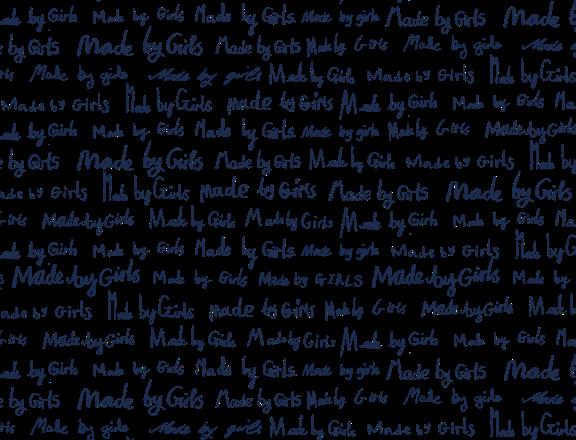 by Girls Made by Girls Made by Girls. Made by girls Made by Girls Made
by Girls Made by Girls Made by Girls Made by Girls Made by girls Made
Made by girls Made by girls Made by Girls Made by Girls Made by Girls
Made by Girls Made by Girls made by Girls Made by Girls Made by Girls
by Girls Made by Girls Made by Girls. Made by girls Made by Girls Made by Girls
by Girls Made by Girls Made by Girls Made by Girls Made by Girls Made by
by Girls Made by Girls made by Girls Made by Girls Made by Girls
Girls Made by Girls Made by Girls Made by Girls Made by Girls Made by Girls
by Girls Made by Girls Made by Girls. Made by girls Made by Girls Made by
Made by Girls Made by Girls Made by GIRLS Made by Girls Made by
by Girls Made by Girls made by Girls Made by Girls Made by Girls Made
Girls Made by Girls Made by Girls Made by Girls Made by Girls Made by Girls
by Girls Made by Girls Made by Girls. Made by girls Made by Girls Made
by Girls Made by Girls Made by Girls Made by Girls Made by girls Made
Made by girls Made by girls Made by Girls Made by Girls Made by Girls